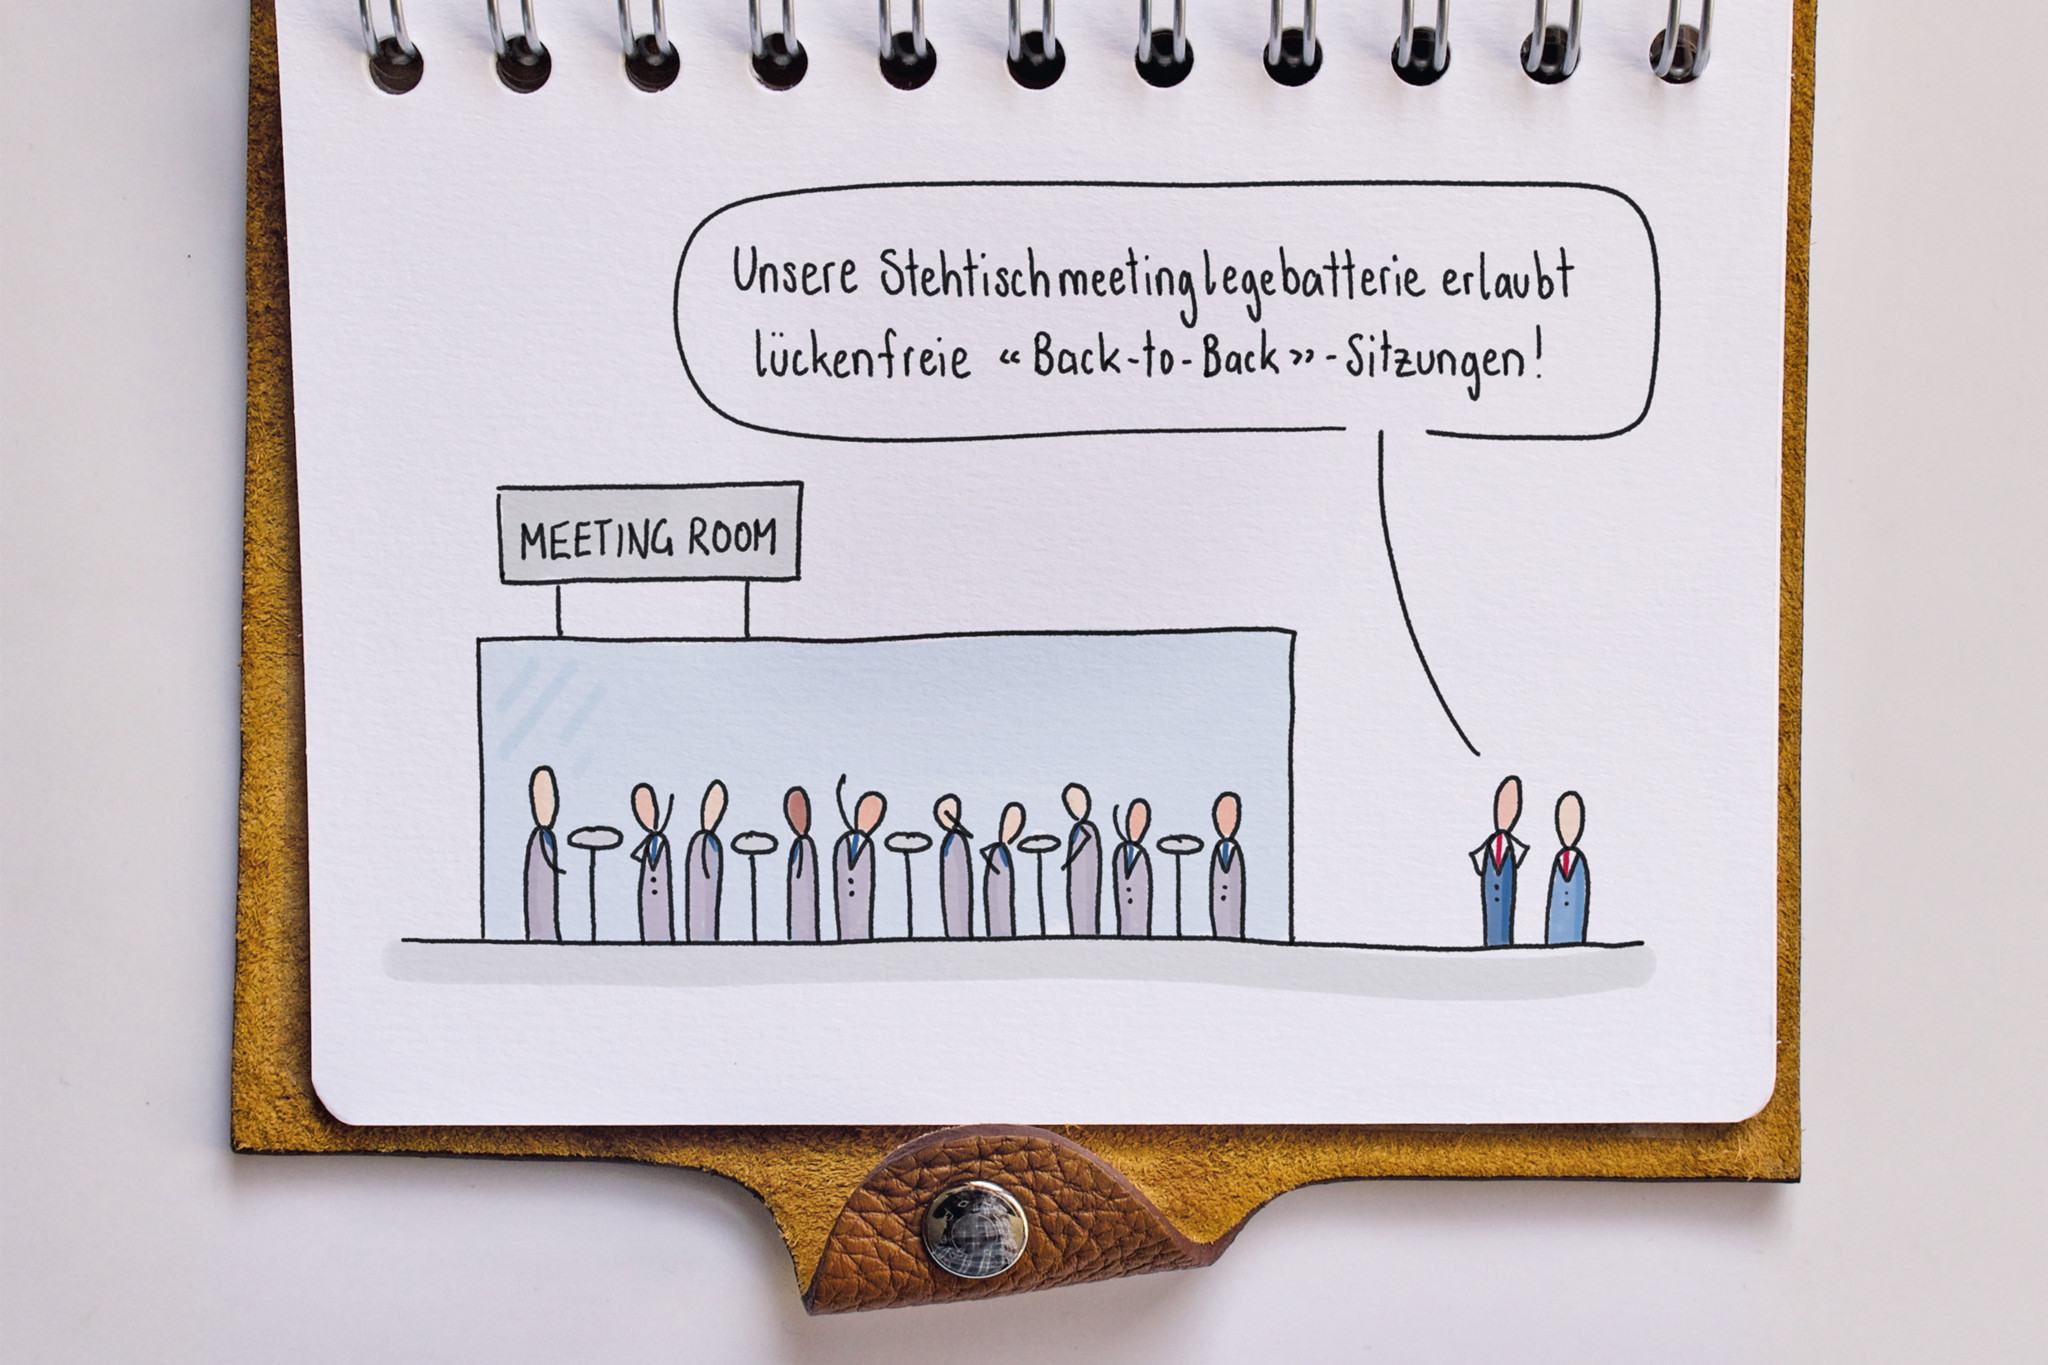 Unsere Stehtischmeetinglegebatterie erlaubt
lückenfreie «Back-to-Back»-Sitzungen!
MEETING ROOM